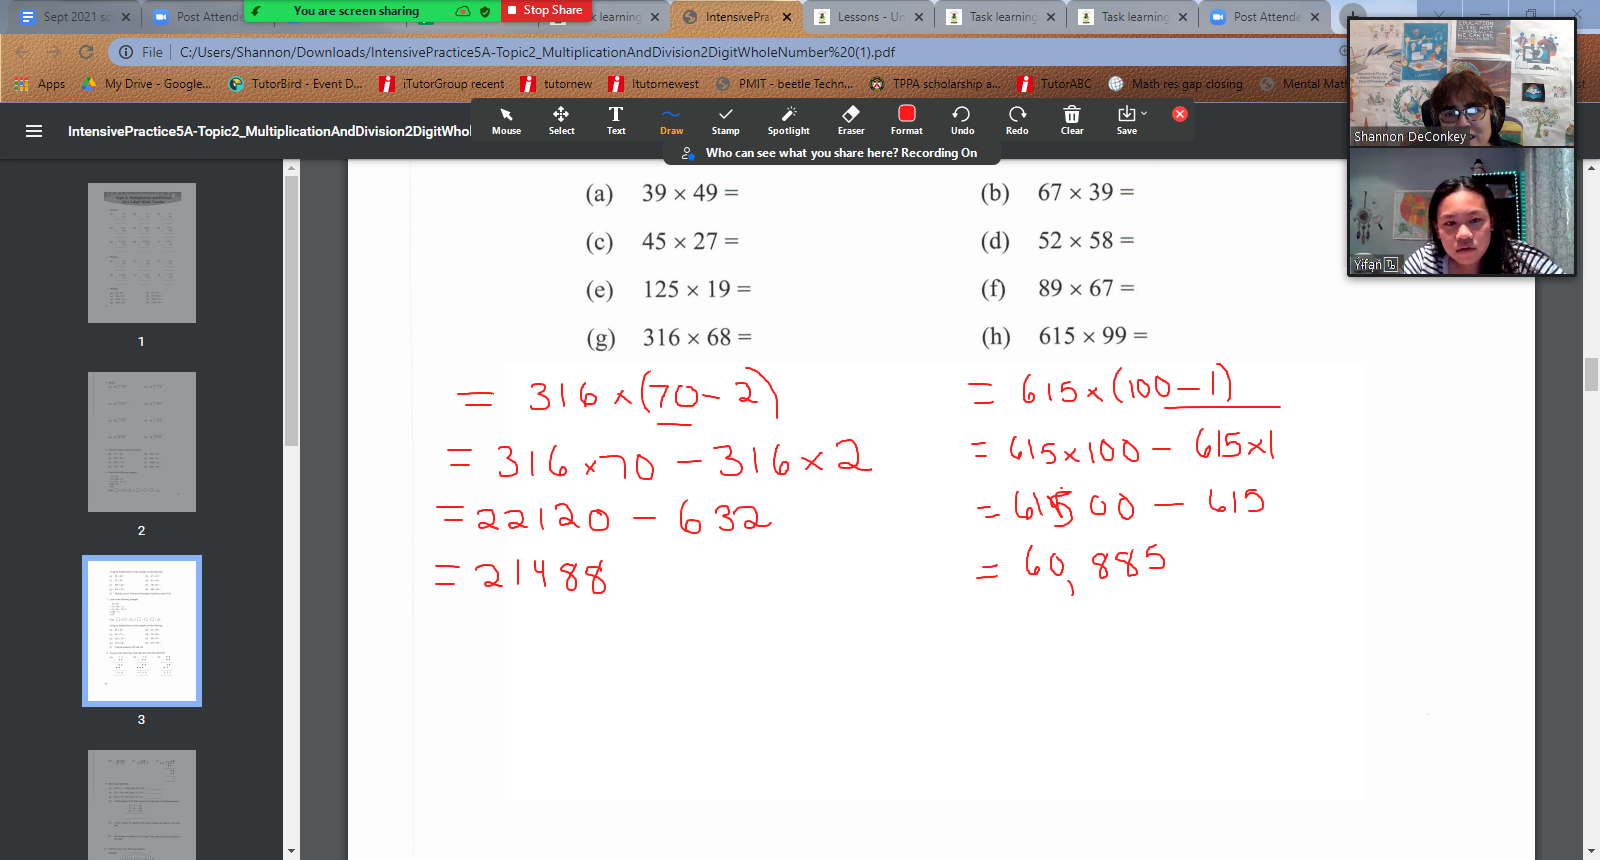 Sept 2021 sc
Post Attende
You are screen sharing
Stop Share
k learning
IntensivePra
Lessons - Un
Task learning
Task learning
Post Attende
File
C:/Users/Shannon/Downloads/IntensivePractice5A-Topic2_MultiplicationAndDivision2DigitWholeNumber%20(1).pdf
Apps
My Drive - Google...
TutorBird - Event D...
iTutorGroup recent
tutornew
Itutornewest
PMIT - beetle Techn...
TPPA scholarship a...
TutorABC
Math res gap closing
Mental Mat
IntensivePractice5A-Topic2_MultiplicationAndDivision2DigitWhol
Mouse
Select
Text
Draw
Stamp
Spotlight
Eraser
Format
Undo
Redo
Clear
Save
Who can see what you share here? Recording On
Shannon DeConkey
Yifan
1
2
3
(a) 39 × 49 =
(b) 67 × 39 =
(c) 45 × 27 =
(d) 52 × 58 =
(e) 125 × 19 =
(f) 89 × 67 =
(g) 316 × 68 =
(h) 615 × 99 =
= 316 × (70 – 2)
= 316 × 70 – 316 × 2
= 22120 – 632
= 21488
= 615 × (100 – 1)
= 615 × 100 – 615 × 1
= 61500 – 615
= 60,885